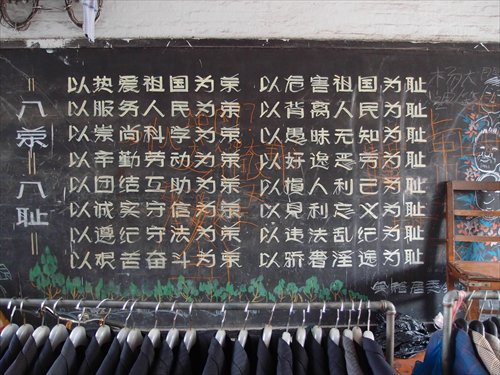 八荣八耻
以热爱祖国为荣 以危害祖国为耻
以服务人民为荣 以背离人民为耻
以崇尚科学为荣 以愚昧无知为耻
以辛勤劳动为荣 以好逸恶劳为耻
以团结互助为荣 以損人利己为耻
以诚实守信为荣 以见利忘义为耻
以遵纪守法为荣 以违法乱纪为耻
以艰苦奋斗为荣 以骄奢淫逸为耻